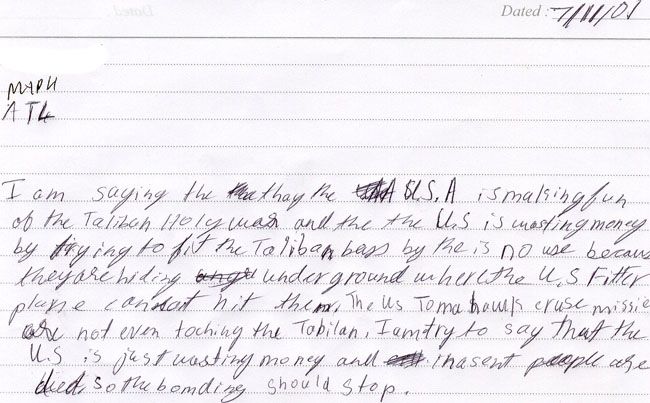 Dated : 7/11/01
MAPH
ATL
I am saying the thay the U.S.A is making fun
of the Taliban Holy war and the the U.S is wasting money
by trying to fit the Taliban bass by the is no use becaus
they are hiding underground where the U.S Fitter
plane cannot hit them. The Us Tomahawks cruse missie
are not even toching the Tabilan. I am try to say that the
U.S is just wasting money and inasent people are
died, so the bomding should stop.